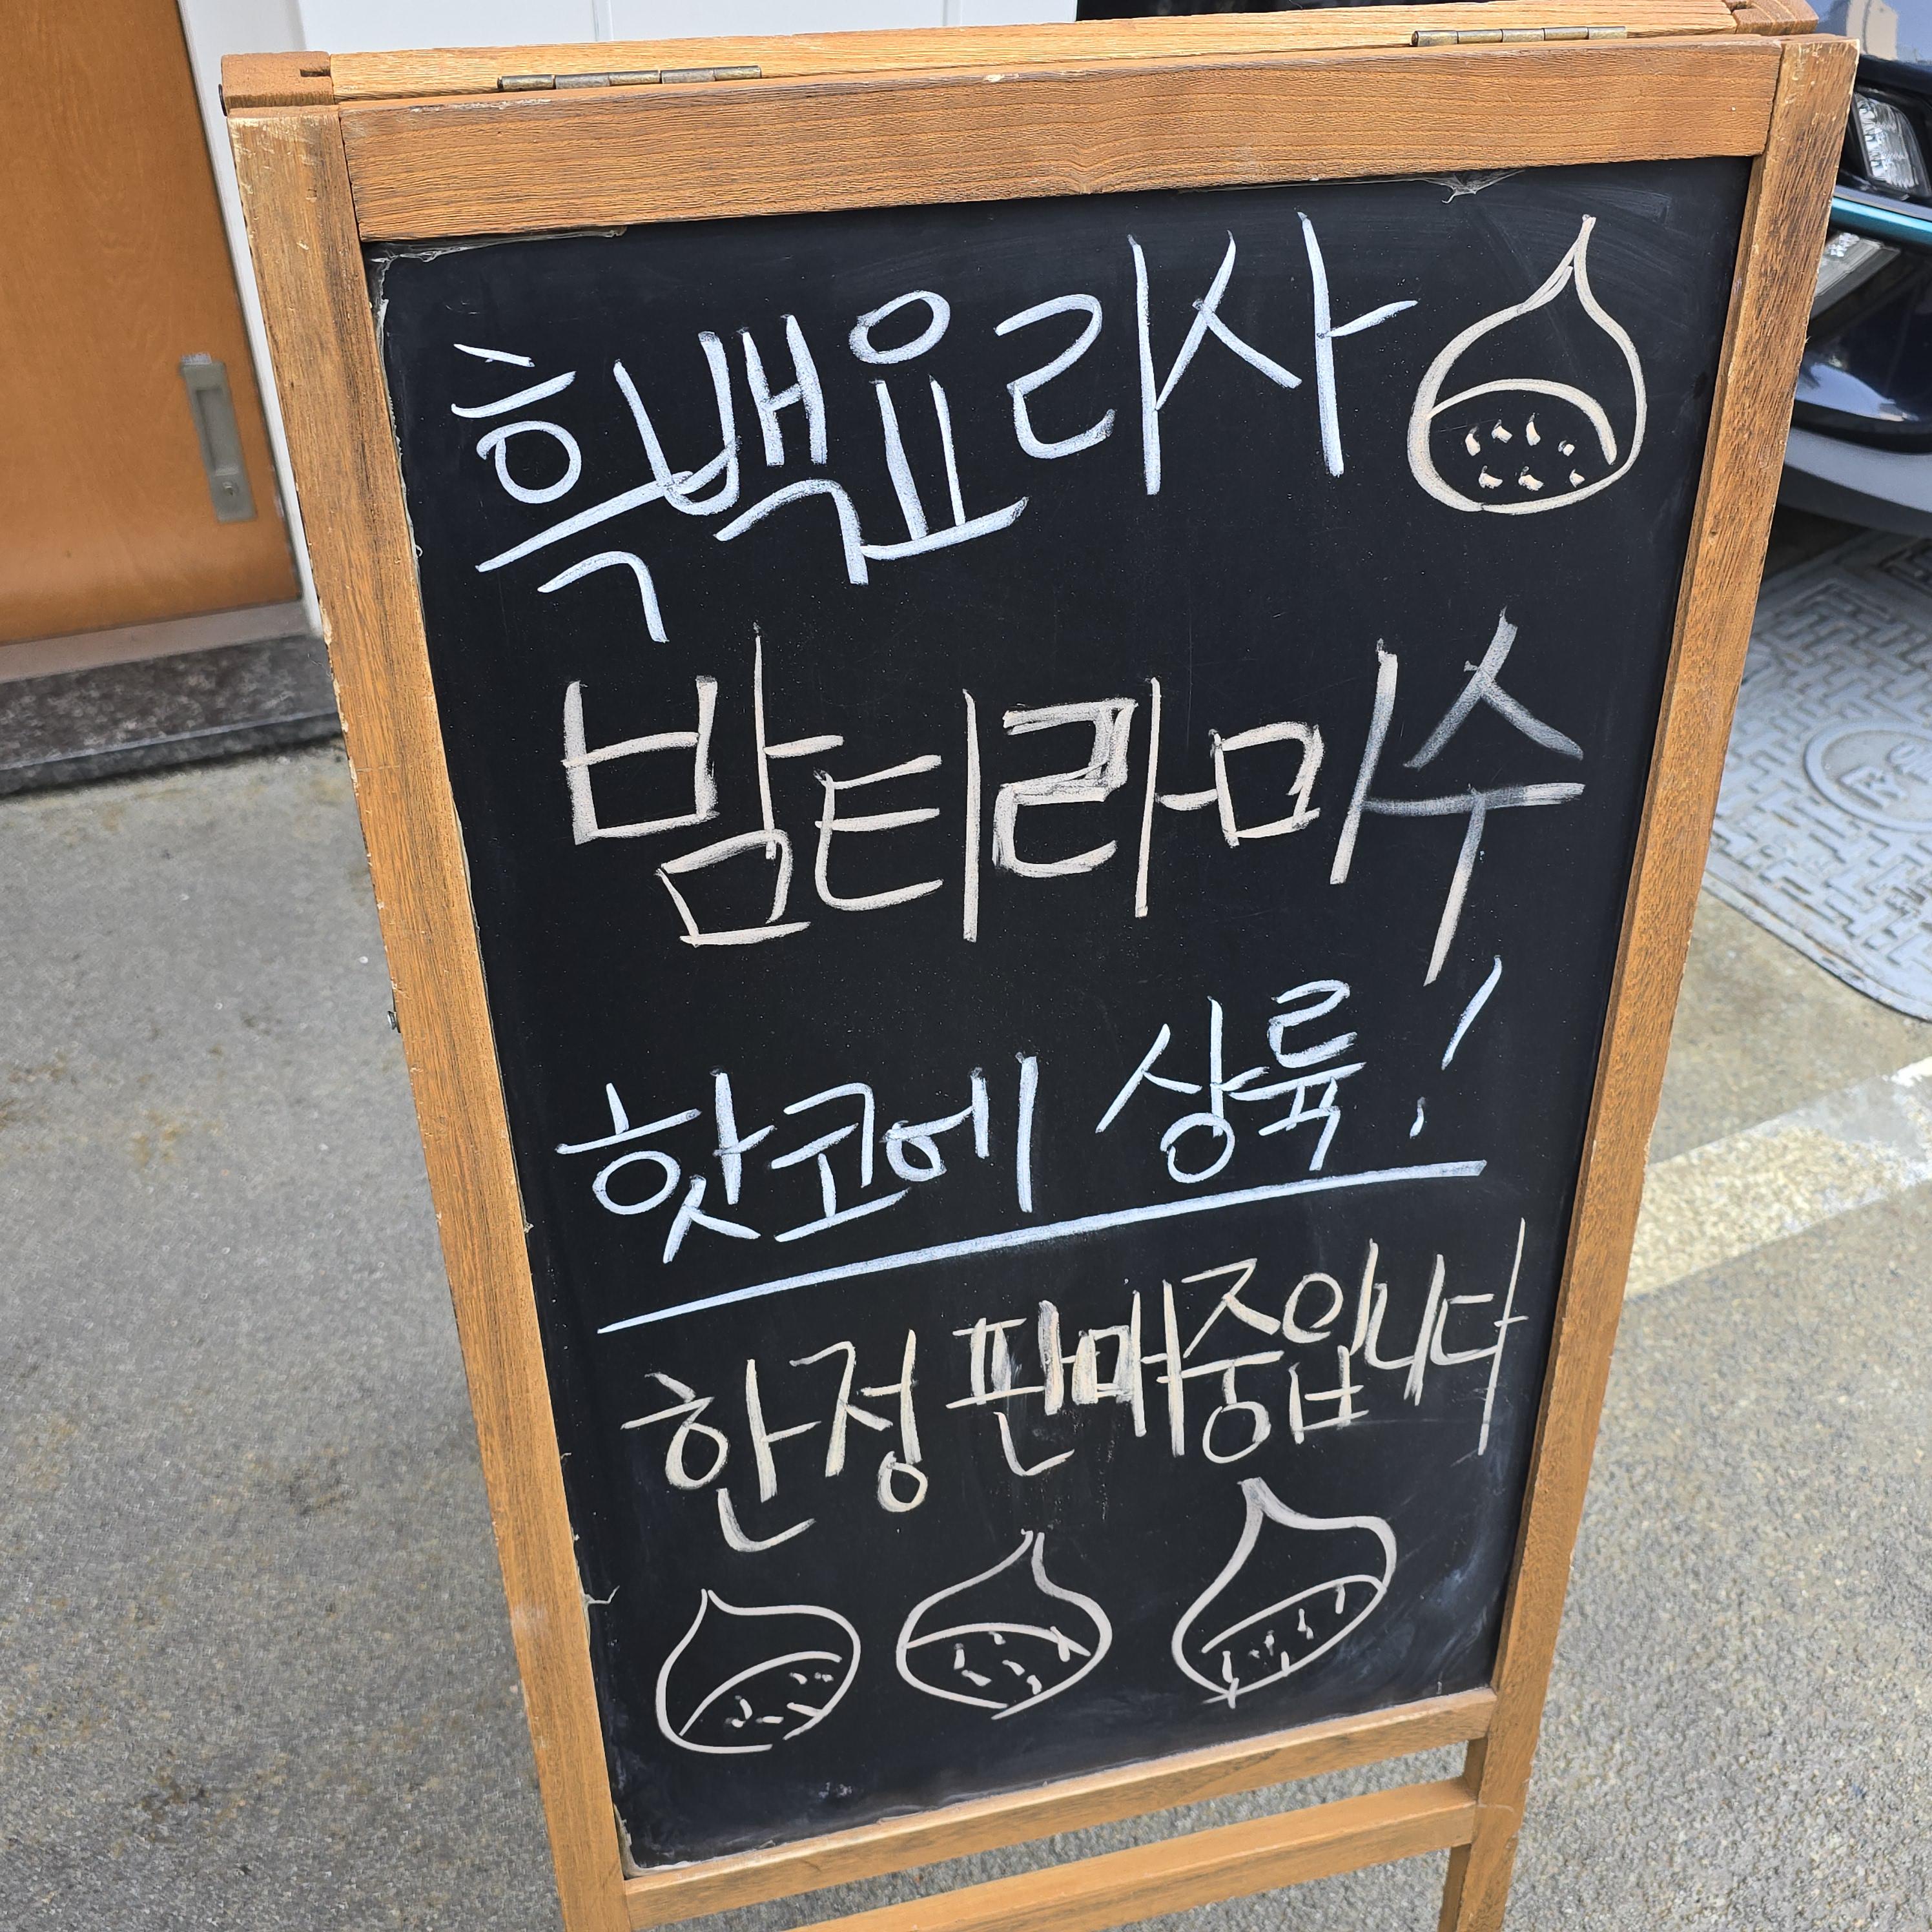 흑백요리사
밤티라미수
핫코에 상륙!
한정 판매중입니다